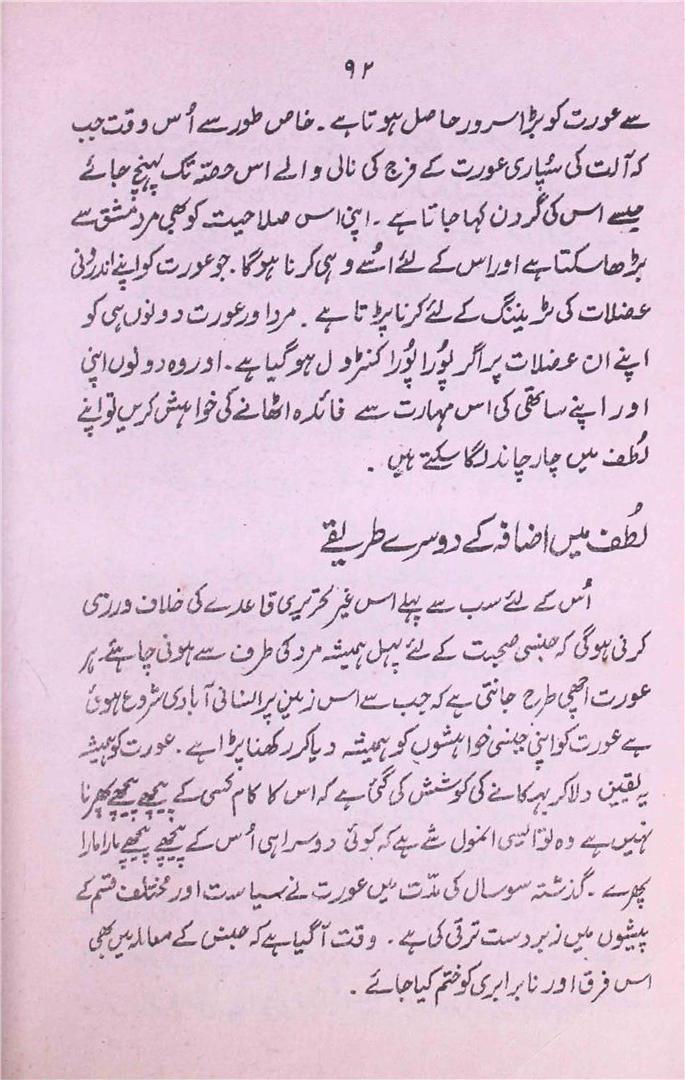 ۹۲
سے عورت کو بڑا سرور حاصل ہوتا ہے ۔ خاص طور سے اُس وقت جب
کہ آلت کی سُپاری عورت کے فرج کی نالی والے اس حصّہ تک پہنچ جائے
جسے اس کی گردن کہا جاتا ہے ۔ اپنی اس صلاحیت کو بھی مرد مشق سے
بڑھا سکتا ہے اور اس کے لئے اُسے وہی کرنا ہوگا ۔ جو عورت کو اپنے اندرونی
عضلات کی ٹریننگ کے لئے کرنا پڑتا ہے ۔ مرد اور عورت دونوں ہی کو
اپنے ان عضلات پر اگر پُورا پُورا کنٹرول ہو گیا ہے ۔ اور وہ دونوں اپنی
اور اپنے ساتھی کی اس مہارت سے فائدہ اٹھانے کی خواہش کریں تو اپنے
لُطف میں چار چاند لگا سکتے ہیں ۔
لُطف میں اضافہ کے دوسرے طریقے
اُس کے لئے سب سے پہلے اس غیر تحریری قاعدے کی خلاف ورزی
کرنی ہوگی کہ جنسی صحبت کے لئے پہل ہمیشہ مرد کی طرف سے ہونی چاہئے ۔ ہر
عورت اچھی طرح جانتی ہے کہ جب سے اس زمین پر انسانی آبادی شروع ہوئی
ہے عورت کو اپنی جنسی خواہشوں کو ہمیشہ دبا کر رکھنا پڑا ہے ۔ عورت کو ہمیشہ
یہ یقین دلا کر بہرکانے کی کوشش کی گئی ہے کہ اس کا کام کسی کے پیچھے پیچھے پھرنا
نہیں ہے وہ تو ایسی انمول شے ہے کہ کوئی دوسرا ہی اُس کے پیچھے پیچھے مارا مارا
پھرے ۔ گذشتہ سو سال کی مدّت میں عورت نے سیاست اور مختلف قسم کے
پیشوں میں زبردست ترقی کی ہے ۔ وقت آ گیا ہے کہ جنس کے معاملہ میں بھی
اس فرق اور نابرابری کو ختم کیا جائے ۔